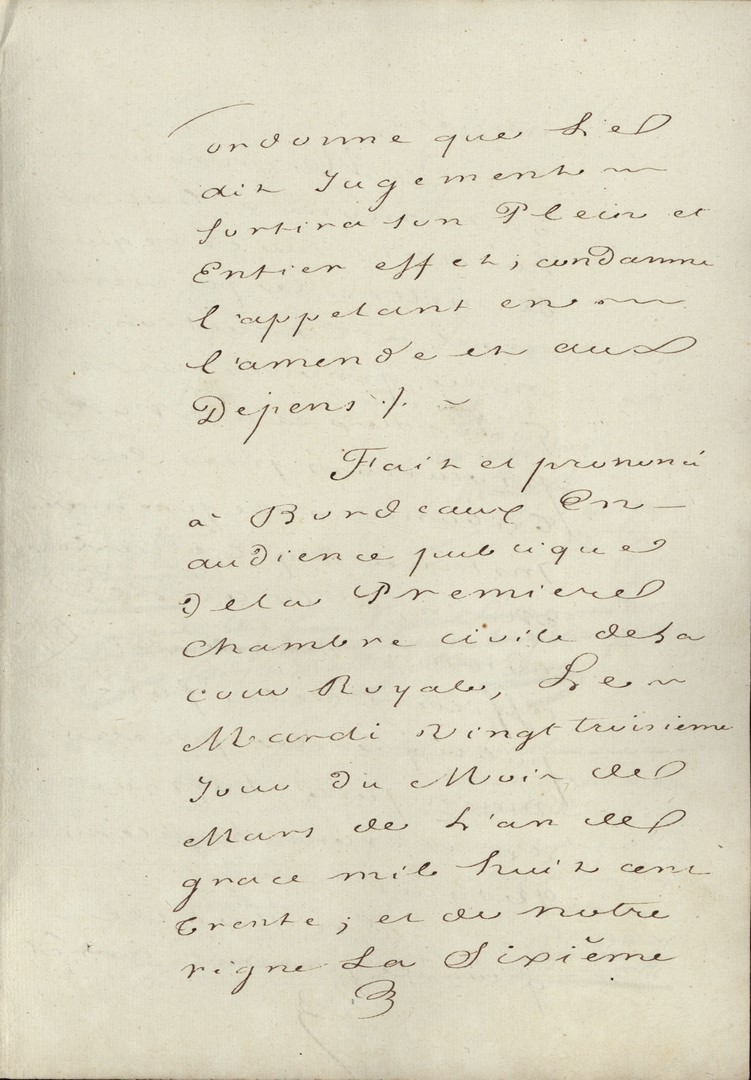 ordonne que Le
dit Jugement
Sortira son Plein et
Entier effet; condamne
l'appelant en
l'amende et aux
Depens ./. ~
Fait et prononcé
à Bordeaux En —
audience publique
De la Premiere
Chambre civile de La
cour Royale, Le
Mardi vingt troisieme
Jour Du Mois de
Mars de L'an de
grace mil huit cent
trente; et de notre
rigne La Sixième